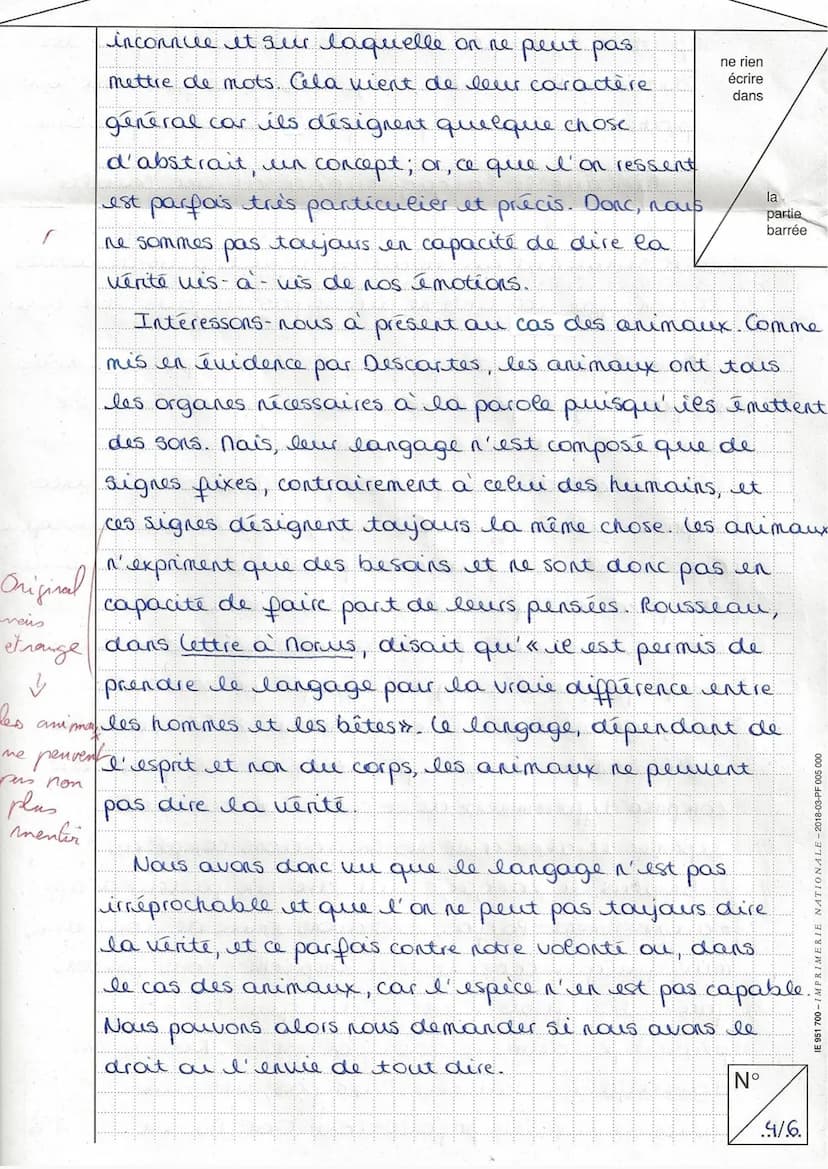 inconnue et sur laquelle on ne peut pas
mettre de mots. Cela vient de leur caractère
général car ils désignent quelque chose
d'abstrait, un concept ; or, ce que l'on ressent
est parfois très particulier et précis. Donc, nous
ne sommes pas toujours en capacité de dire la
vérité vis-à-vis de nos émotions.
Intéressons-nous à présent au cas des animaux. Comme
mis en évidence par Descartes, les animaux ont tous
les organes nécessaires à la parole puisqu'ils émettent
des sons. Mais, leur langage n'est composé que de
signes fixes, contrairement à celui des humains, et
ces signes désignent toujours la même chose. Les animaux
n'expriment que des besoins et ne sont donc pas en
capacité de faire part de leurs pensées. Rousseau,
dans Lettre à Morus, disait qu'« il est permis de
prendre le langage pour la vraie différence entre
les hommes et les bêtes ». Le langage, dépendant de
l'esprit et non du corps, les animaux ne peuvent
pas dire la vérité.
Nous avons donc vu que le langage n'est pas
irréprochable et que l'on ne peut pas toujours dire
la vérité, et ce parfois contre notre volonté ou, dans
le cas des animaux, car l'espèce n'en est pas capable.
Nous pouvons alors nous demander si nous avons le
droit ou l'envie de tout dire.
Original
mais
étrange
↓
les animaux
ne peuvent
pas non
plus
mentir
ne rien
écrire
dans
la
partie
barrée
IE 951 700 – IMPRIMERIE NATIONALE – 2018-03-PF 005 000
N°
4/6